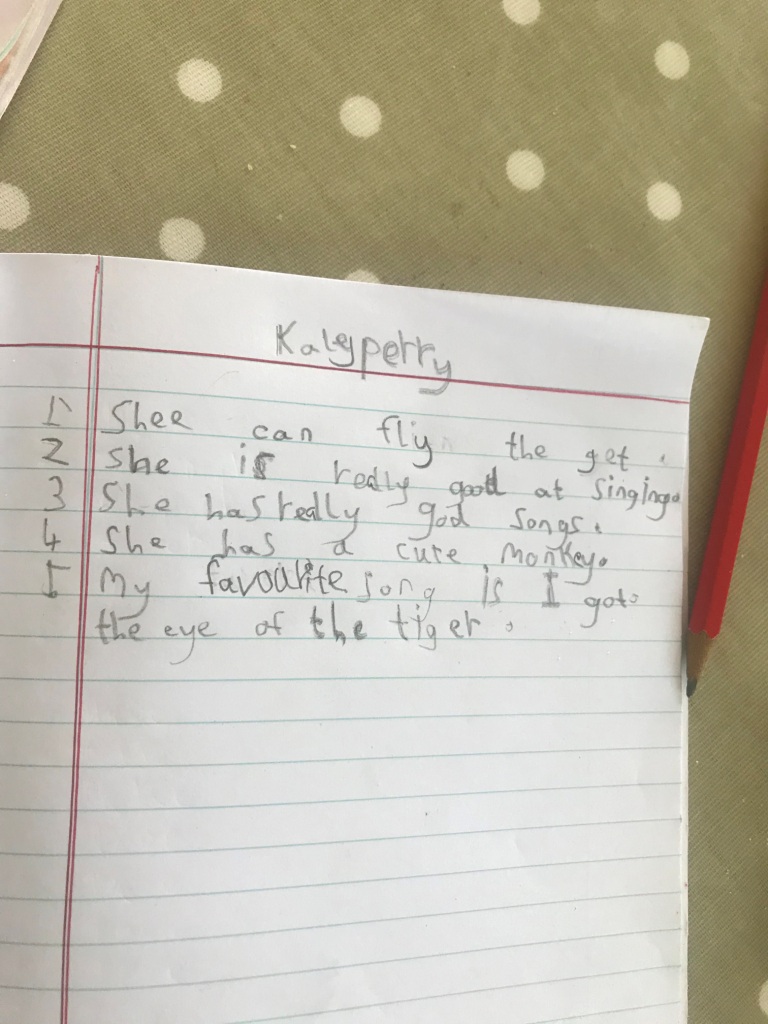 Katy perry
1 Shee can fliy the get.
2 She is really good at singing.
3 She has really god songs.
4 She has a cute monkey.
5 My favourite song is I got
the eye of the tiger.